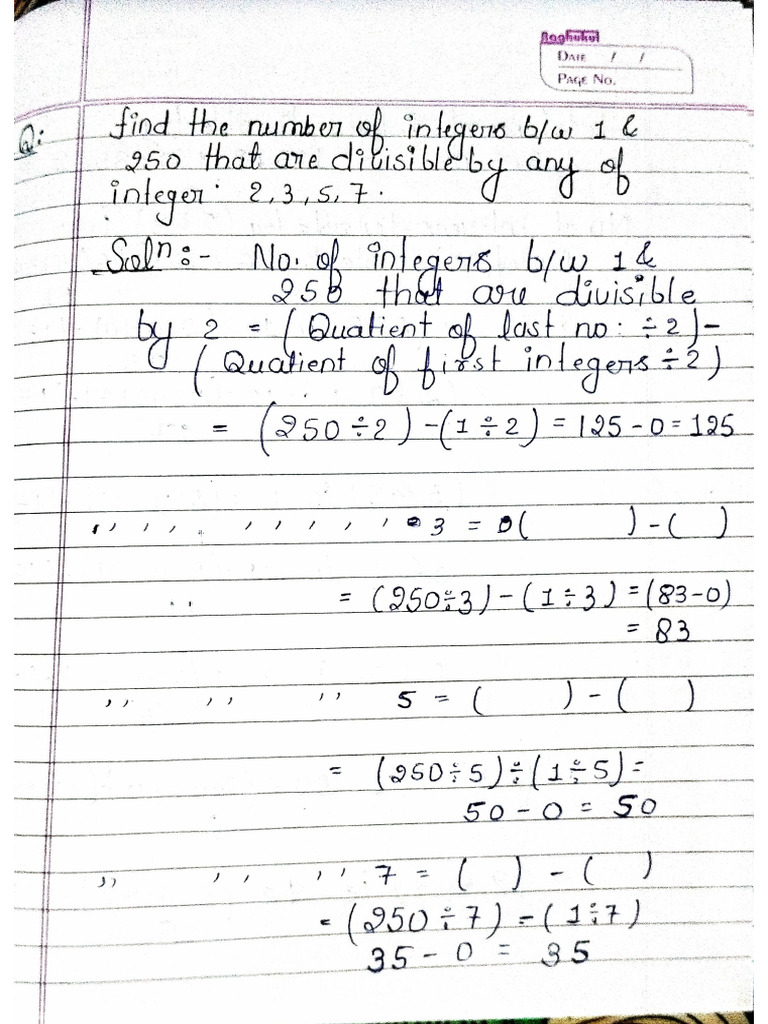 Raghukul
DATE / /
PAGE NO.
Q: find the number of integers b/w 1 &
250 that are divisible by any of
integer 2, 3, 5, 7.
Solⁿ:- No. of integers b/w 1 &
250 that are divisible
by 2 = (Quatient of last no: ÷2)-
(Quatient of first integers ÷2)
= (250÷2)-(1÷2) = 125-0=125
,, ,, ,, ,, ,, 3 = ( ) - ( )
= (250÷3)-(1÷3) = (83-0)
= 83
,, ,, ,, 5 = ( ) - ( )
= (250÷5)÷(1÷5)=
50-0 = 50
,, ,, ,, 7 = ( ) - ( )
= (250÷7)-(1÷7)
35-0 = 35